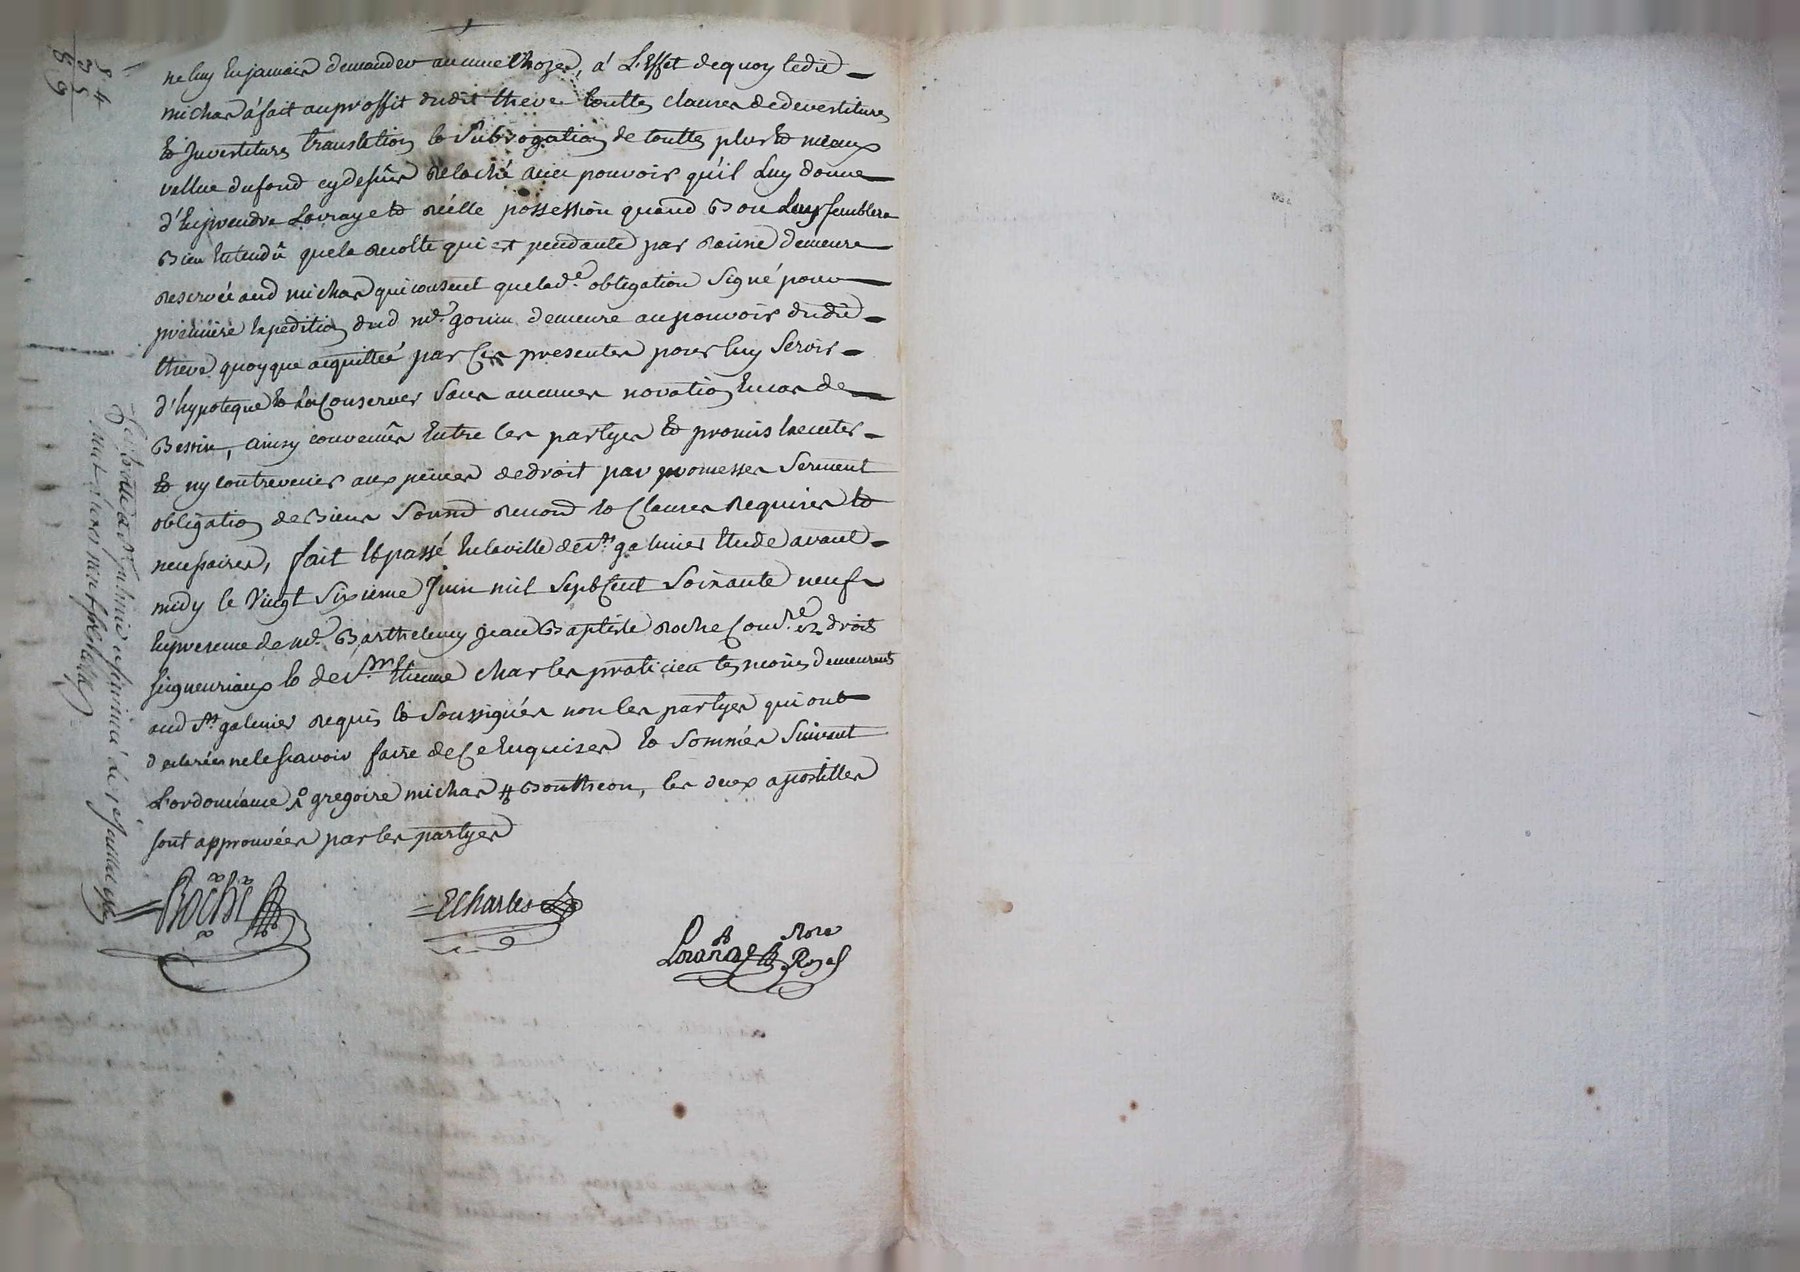 ne luy en jamais demander aucune chozes, a L'Effet de quoy ledit
michas a fait au proffit dudit theve touttes clauses de devestitures
Et Investitures translation et Subrogation de toutte plus et mieux
vallue du fond cy dessus relaché avec pouvoir qu'il Luy donne
d'En prendre La vraye et réelle possession quand Bon Luy semblera
Bien Entendû que la recolte qui est pendante par racine demeure
reservée aud michas qui consent que lad.e obligation Signé pour
premiere Expedition dud m.e gonin demeure au pouvoir dudit
theve quoyque acquittée par Ces presentes pour luy Servir
d'hypoteque et La Conserver Sans aucunes novation En cas de
Besoin, ainsy convenûs Entre les partyes et promis Executer
et ny contrevenir aux peines de droit par promesses Serment
obligation de Biens Soumd renond et Clauses Requises et
necessaires, fait et passé En la ville de St galmier Etude avant
midy le Vingt Sixieme Juin mil Sept Cent Soixante neuf
En presence de m.e Barthelemy jean Baptiste Roche Com.re ez droits
seigneuriaux et de S.r Etienne Charles praticien tesmoins demeurents
aud St galmier requis et Soussignés non les partyes qui ont
declarées ne le scavoir faire de Ce Enquises et Sommées Suivant
L'ordonnance gregoire michas Bontheon, les deux apostilles
sont approuvées par les partyes
Roche
ECharles
Nore
Royal